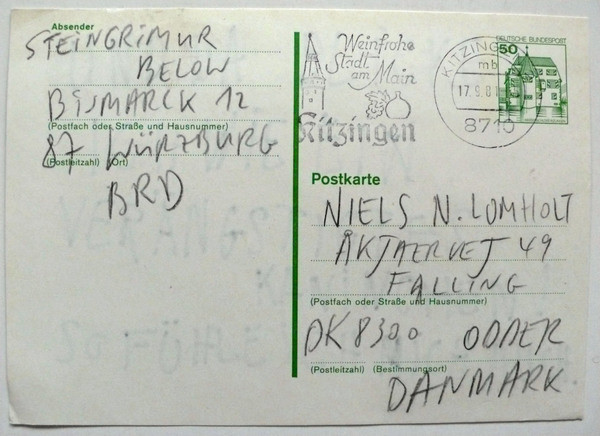 Absender
STEINGRIMUR
BELOW
BISMARCK 12
(Postfach oder Straße und Hausnummer)
87 WÜRZBURG
(Postleitzahl) (Ort)
BRD
Weinfrohe
Stadt
am Main
Kitzingen
KITZINGEN
mb
17.9.81
8710
DEUTSCHE BUNDESPOST
50
Postkarte
NIELS N. LOMHOLT
ÅKJAERVEJ 49
FALLING
(Postfach oder Straße und Hausnummer)
DK 8300 ODDER
(Postleitzahl) (Bestimmungsort)
DANMARK